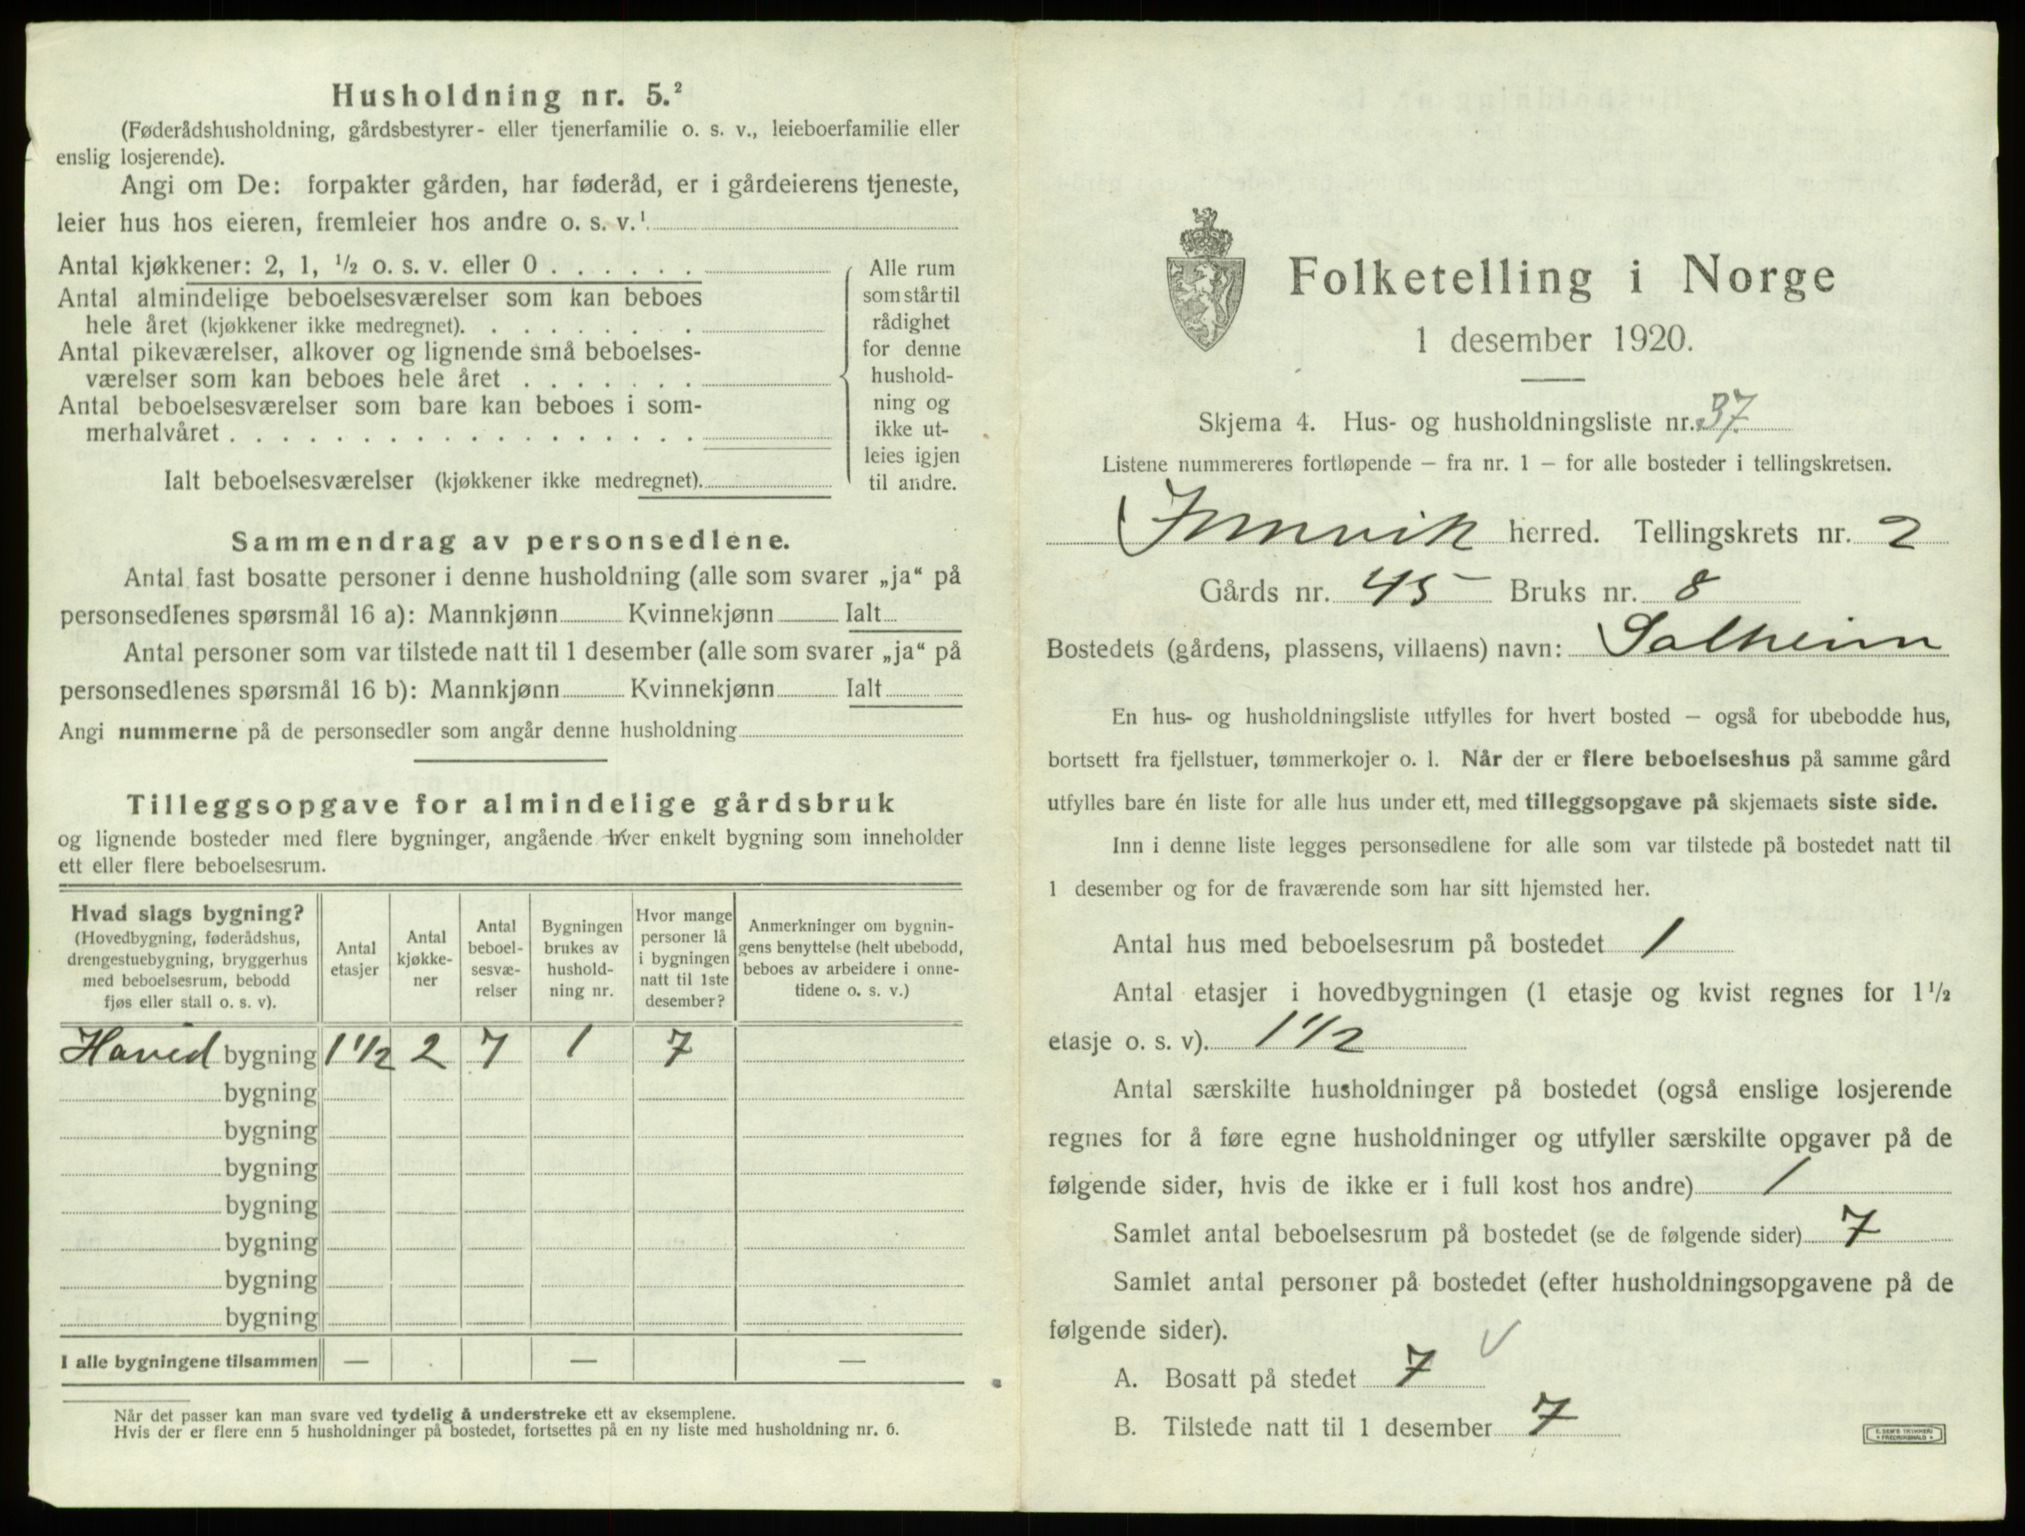 Husholdning nr. 5.²
(Føderådshusholdning, gårdsbestyrer- eller tjenerfamilie o. s. v., leieboerfamilie eller
enslig losjerende).
Angi om De: forpakter gården, har føderåd, er i gårdeierens tjeneste,
leier hus hos eieren, fremleier hos andre o. s. v.¹
Antal kjøkkener: 2, 1, ½ o. s. v. eller 0 . . . . . .
Antal almindelige beboelsesværelser som kan beboes
hele året (kjøkkener ikke medregnet). . . . . . . . .
Antal pikeværelser, alkover og lignende små beboelses-
værelser som kan beboes hele året . . . . . . .
Antal beboelsesværelser som bare kan beboes i som-
merhalvåret . . . . . . . . . . . . . . . . . .
Ialt beboelsesværelser (kjøkkener ikke medregnet).
Alle rum
som står til
rådighet
for denne
hushold-
ning og
ikke ut-
leies igjen
til andre.
Sammendrag av personsedlene.
Antal fast bosatte personer i denne husholdning (alle som svarer „ja“ på
personsedlenes spørsmål 16 a): Mannkjønn Kvinnekjønn Ialt
Antal personer som var tilstede natt til 1 desember (alle som svarer „ja“ på
personsedlenes spørsmål 16 b): Mannkjønn Kvinnekjønn Ialt
Angi nummerne på de personsedler som angår denne husholdning
Tilleggsopgave for almindelige gårdsbruk
og lignende bosteder med flere bygninger, angående hver enkelt bygning som inneholder
ett eller flere beboelsesrum.
Hvad slags bygning?
(Hovedbygning, føderådshus,
drengestuebygning, bryggerhus
med beboelsesrum, bebodd
fjøs eller stall o. s. v).
Antal
etasjer
Antal
kjøkke-
ner
Antal
beboel-
sesvæ-
relser
Bygningen
brukes av
hushold-
ning nr.
Hvor mange
personer lå
i bygningen
natt til 1ste
desember?
Anmerkninger om bygnin-
gens benyttelse (helt ubebodd,
beboes av arbeidere i onne-
tidene o. s. v.)
Hovedbygning 1 1/2 2 7 1 7
bygning
bygning
bygning
bygning
bygning
bygning
bygning
I alle bygningene tilsammen — . — —
Når det passer kan man svare ved tydelig å understreke ett av eksemplene.
Hvis der er flere enn 5 husholdninger på bostedet, fortsettes på en ny liste med husholdning nr. 6.
Folketelling i Norge
1 desember 1920.
Skjema 4. Hus- og husholdningsliste nr. 37
Listene nummereres fortløpende – fra nr. 1 – for alle bosteder i tellingskretsen.
Innvik herred. Tellingskrets nr. 2
Gårds nr. 45 Bruks nr. 8
Bostedets (gårdens, plassens, villaens) navn: Solheim
En hus- og husholdningsliste utfylles for hvert bosted – også for ubebodde hus,
bortsett fra fjellstuer, tømmerkojer o. l. Når der er flere beboelseshus på samme gård
utfylles bare én liste for alle hus under ett, med tilleggsopgave på skjemaets siste side.
Inn i denne liste legges personsedlene for alle som var tilstede på bostedet natt til
1 desember og for de fraværende som har sitt hjemsted her.
Antal hus med beboelsesrum på bostedet 1
Antal etasjer i hovedbygningen (1 etasje og kvist regnes for 1½
etasje o. s. v). 1 1/2
Antal særskilte husholdninger på bostedet (også enslige losjerende
regnes for å føre egne husholdninger og utfyller særskilte opgaver på de
følgende sider, hvis de ikke er i full kost hos andre) 1
Samlet antal beboelsesrum på bostedet (se de følgende sider) 7
Samlet antal personer på bostedet (efter husholdningsopgavene på de
følgende sider).
A. Bosatt på stedet 7
B. Tilstede natt til 1 desember 7
E. SEM'S TRYKKERI
FREDRIKSHALD